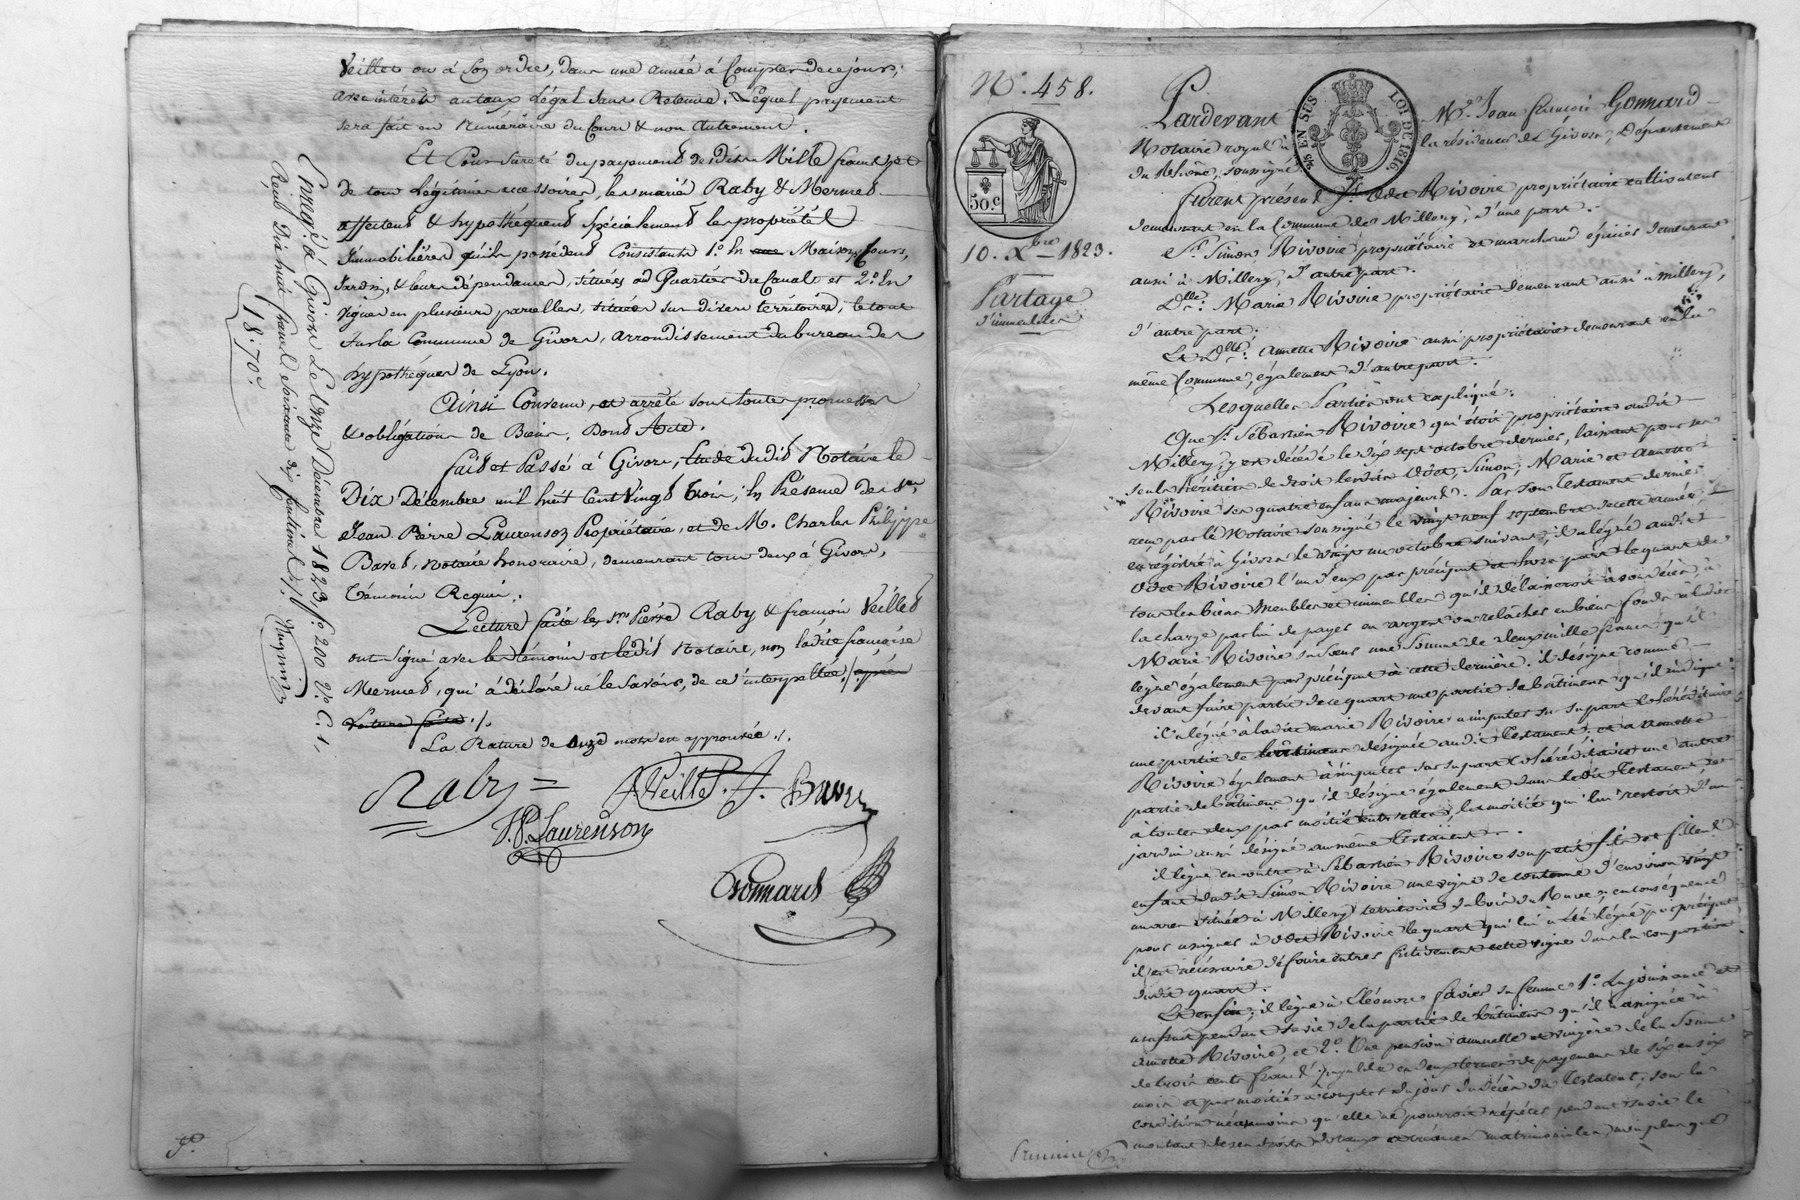 Veillet ou à son ordre, dans une année à Compter de ce jour,
avec intérêts au taux Légal sans Retenue. Lequel payement
sera fait en Numéraire du Cours & non Autrement.
Et Pour Sureté du payement des dits Mille francs et
de tous Légitimes accessoires, les mariés Raby & Mermet
affectent & hypothéquent spécialement les propriétés
Immobilières qu'ils possèdent Consistants 1.º En une Maison, Cours,
Jardin, & leurs dépendances, situées au Quartier du Canal et 2.º En
Vignes en plusieurs parcelles, situées sur divers territoires, le tout
Sur la Commune de Givors, arrondissement du bureau des
hypothèques de Lyon.
Ainsi Convenu, et arrêté sous toutes promesses
& obligations de Biens. Dont Acte.
fait et Passé à Givors, Etude dudit Notaire le
Dix Décembre mil huit Cent Vingt trois, En Présence des Srs
Jean Pierre Laurenson Propriétaire, et de M. Charles Philippe
Baret, notaire honoraire, demeurant tous deux à Givors,
Témoins Requis.
Lecture faite les srs Pierre Raby & françois Veillet
ont signé avec les témoins et ledit Notaire, non ladite françoise
Mermet, qui a déclaré ne le savoir, de ce interpellée. après
lecture faite ./.
La Rature de onze mots est approuvée ./.
Raby
Veillet
Baret
J.P. Laurenson
Gonnard
Enregt. à Givors Le Onze Décembre 1823, fo. 200 Vo. C. 1,
Reçu Dix huit francs soixante dix centimes
18f. 70c.
N.º 458.
50.c
10. Xbre 1823.
Partage
d'immeubles
¼ EN SUS
LOI DE 1816
Pardevant Me. Jean françois Gonnard
Notaire royal à la résidence de Givors, Département
du Rhône, soussigné
Furent présents Sr. Odet Rivoire propriétaire cultivateur
demeurant en la Commune de Millery, d'une part.
Sr. Simon Rivoire propriétaire et marchand épicier demeurant
aussi à Millery, d'autre part.
Dlle. Marie Rivoire propriétaire demeurant aussi à Millery,
d'autre part.
Et Dlle. Annette Rivoire aussi propriétaire demeurant en la
même Commune, également d'autre part.
Lesquelles Parties ont expliqué:
Que Sr. Sébastien Rivoire qui étoit propriétaire audit
Millery, y est décédé le dix sept octobre dernier, laissant pour ses
seuls héritiers de droit lesdits Odet, Simon, Marie et Annette
Rivoire ses quatre enfans majeurs. Par son Testament dernier
reçu par le Notaire soussigné le vingt neuf septembre de cette année
enrégistré à Givors le vingt un octobre suivant, il a légué audit
Odet Rivoire l'un d'eux par préciput et hors part le quart de
tous les biens meubles et immeubles qu'il délaisseroit à son décès, à
la charge par lui de payer en argent ou relâcher en biens fonds à ladite
Marie Rivoire sa sœur une somme de deux mille francs qu'il
lègue également par préciput à cette dernière. il désigne comme
devant faire partie de ce quart une partie de bâtimens qu'il indique.
il a légué à ladite marie Rivoire à imputer sur sa part héréditaire
une partie de bâtimens désignée audit Testament et à Annette
Rivoire également à imputer sur sa part héréditaire une autre
partie de bâtimens qu'il désigne également dans ledit Testament et
à toutes deux par moitié entre elles, la moitié qui lui restoit d'un
jardin aussi désigné au même Testament.
il lègue en outre à Sébastien Rivoire son petit fils et filleul
enfant dudit Simon Rivoire une vigne de contenue d'environ vingt
située à Millery territoire du bois du
pour assigner à Odet Rivoire le quart qui lui a été légué par préciput
il est nécessaire de faire entrer fictivement cette vigne dans la composition
dudit quart.
Et enfin, il lègue à Eléonore favier sa femme 1.º La jouissance et
usufruit pendant sa vie de la partie de bâtimens qu'il a assignée à
Annette Rivoire, et 2.º Une pension annuelle et viagère de la somme
de trois cents francs payable en deux termes de payement de six en six
mois et par moitié à compter du jour du décès du Testateur, sous la
condition néanmoins qu'elle ne pourroit répéter pendant sa vie le
montant de ses droits dotaux et matrimoniaux, non plus que